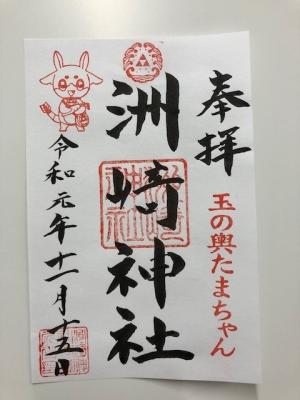 奉拝
玉の輿たまちゃん
洲崎神社
令和元年十一月十五日